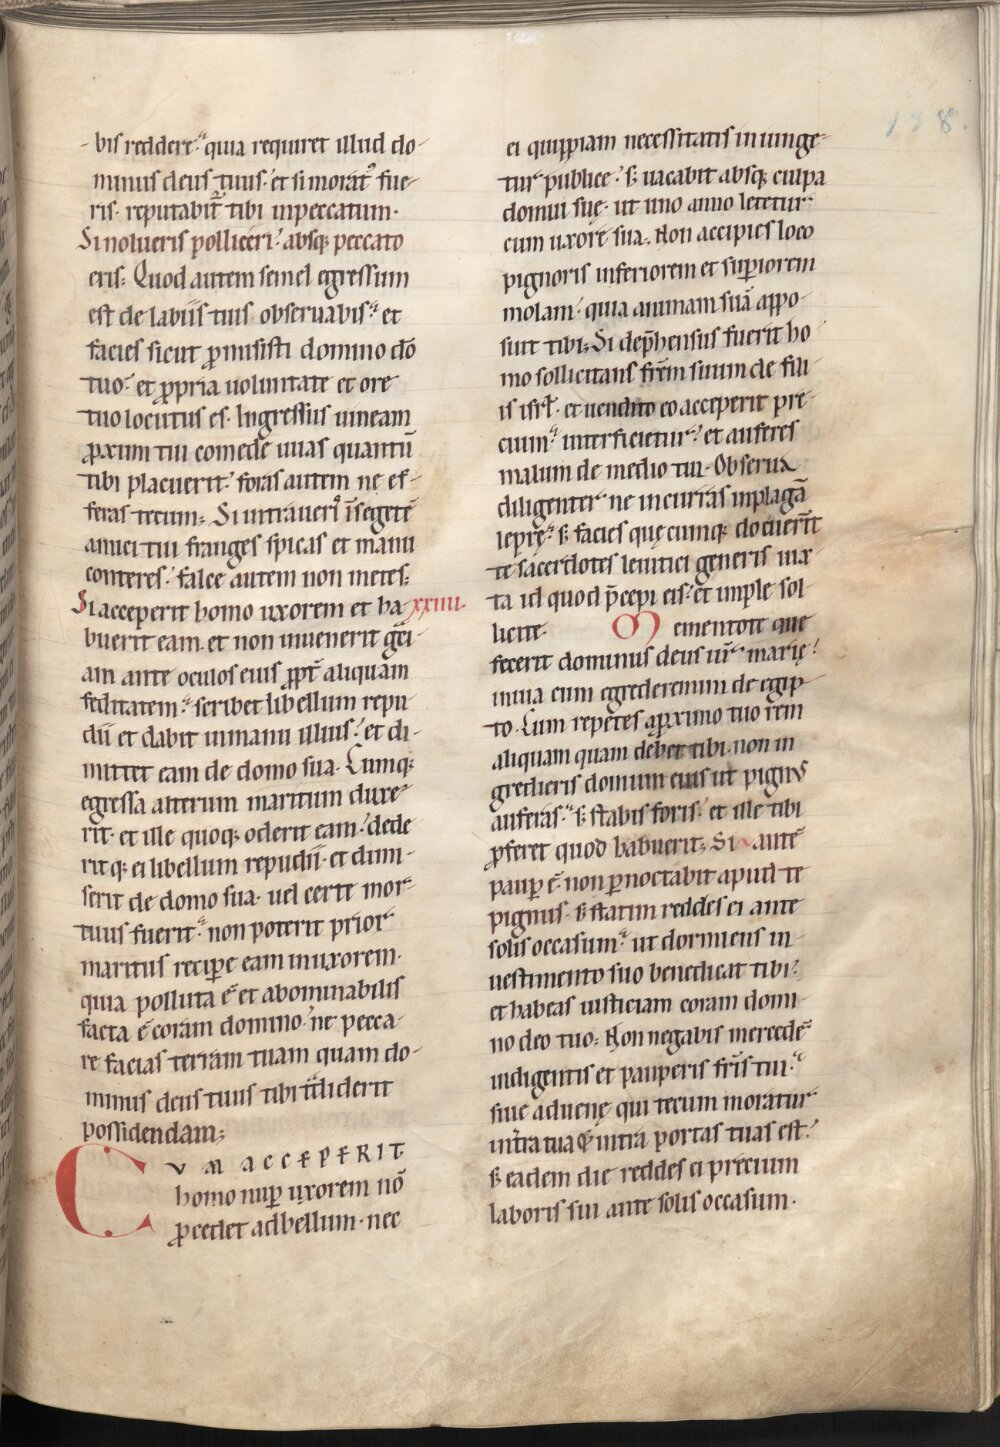 bis reddere. quia requiret illud do-
minus deus tuus. et si moratꝰ fue-
ris. reputabit̄ tibi inpeccatum.
Si nolueris polliceri. absq; peccato
eris. Quod autem semel egressum
est de labiis tuis observabis. et
facies sicut ꝓmisisti domino dō
tuo. et ꝓpria voluntate et ore
tuo locutus es. Ingressus vineam
ꝓximi tui comede uvas quantū
tibi placuerit. foras autem ne ef-
feras tecum. Si intraveris̄ ī segetē
amici tui franges spicas et manu
conteres. falce autem non metes.
Si acceperit homo uxorem et ha- xxiiii.
buerit eam. et non invenerit gr̄i-
am ante oculos eius ꝓpt̄ aliquam
feditatem. scribet libellum repu
dii et dabit inmanu illius. et di-
mittet eam de domo sua. Cumq;
egressa alterum maritum duxe-
rit. et ille quoq; oderit eam. dede
ritq; ei libellum repudii. et dimi-
serit de domo sua. vel certe mor-
tuus fuerit. non poterit prior
maritus recipe eam inuxorem.
quia polluta ē et abominabilis
facta ē coram domino. ne pecca-
re facias terram tuam quam do-
minus deus tuus tibi t̄diderit
possidendam;
CUM ACCEPERIT
homo nup uxorem nō
ꝓcedet adbellum. nec
ei quippiam necessitatis iniunge-
tur publice. s; vacabit absq; culpa
domui suę. ut uno anno letetur
cum uxore sua. Non accipies loco
pignoris inferiorem et supiorem
molam. quia animam suā appo-
suit tibi. Si dep̄hensus fuerit ho
mo sollicitans frēm suum de fili
is isrl̄. et vendito eo acceperit pre-
cium. interficietur. et auferes
malum de medio tui. Observa
diligenter ne incurras inplagā
leprę. s; facies quęcumq; docuerīt
te sacerdotes levitici generis iux
ta id quod p̄cepi eis. et imple sol
licite. Mementote que
fecerit dominus deus vr̄ marię.
invia cum egrederemini de egip-
to. Cum repetes apꝓximo tuo rem
aliquam quam debet tibi. non in
gredieris domum eius ut pignus
auferas. s; stabis foris. et ille tibi
ꝓferet quod habuerit. Si autē
paup ē. non ꝑnoctabit apud te
pignus. s; statim reddes ei ante
solis occasum. ut dormiens in
vestimento suo benedicat tibi.
et habeas iusticiam coram domi-
no deo tuo. Non negabis mercedē
indigentis et pauperis fr̄is tui.
sive advenę qui tecum moratur
int̄ra tua & intra portas tuas est.
s; eadem die reddes ei precium
laboris sui ante solis occasum.